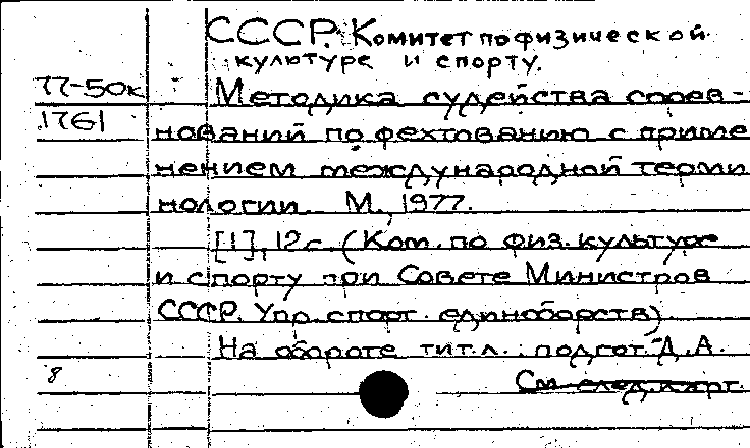 СССР. Комитет по физической
культуре и спорту.
77-50к Методика судейства сорев-
1761 нований по фехтованию с приме
нением международной терми
нологии. М., 1977.
[1], 12 с. (Ком. по физ. культуре
и спорту при Совете Министров
СССР. Упр. спорт. единоборств)
На обороте тит. л.: подгот. Д.А.
8 См. след. карт.